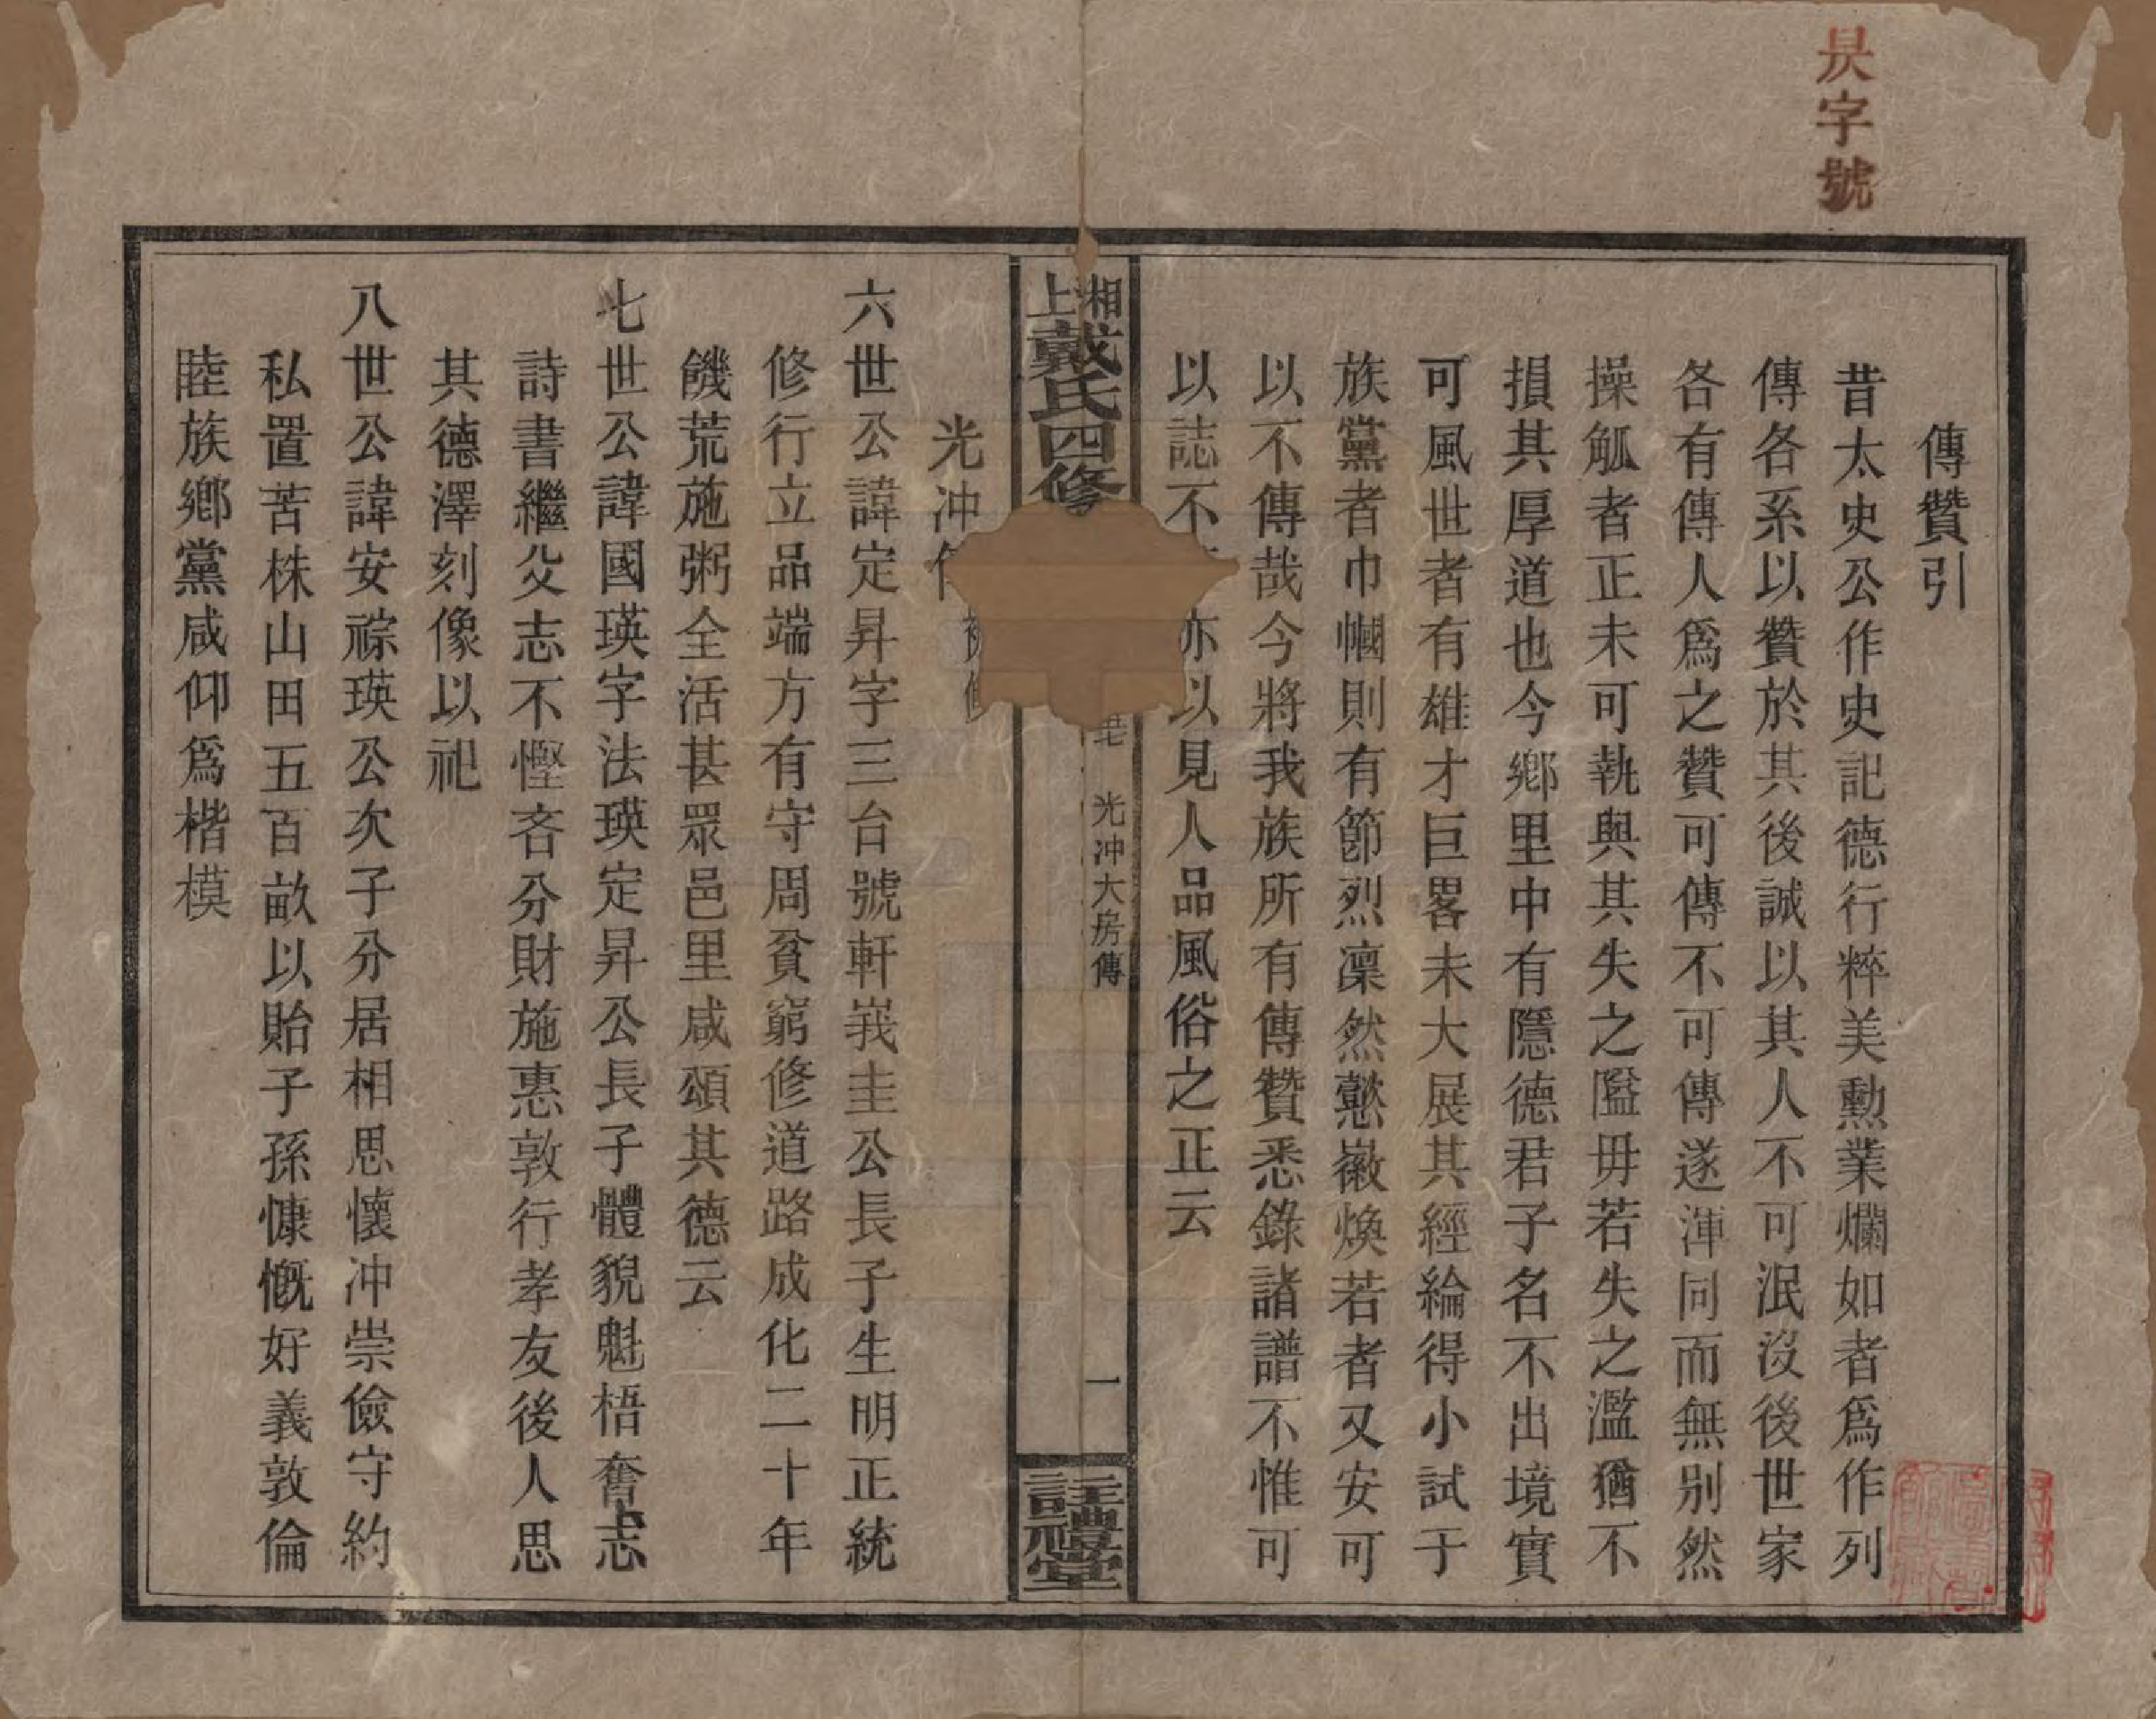 昃字號
傳贊引
昔太史公作史記德行粹美勲業爛如者爲作列
傳各系以贊於其後誠以其人不可泯沒後世家
各有傳人爲之贊可傳不可傳遂渾同而無別然
操觚者正未可執與其失之隘毋若失之濫猶不
損其厚道也今鄉里中有隱德君子名不出境實
可風世者有雄才巨畧未大展其經綸得小試于
族黨者巾幗則有節烈凜然懿徽煥若者又安可
以不傳哉今將我族所有傳贊悉錄諸譜不惟可
以誌不亦以見人品風俗之正云
湘上戴氏四修
光冲大房傳
一
註禮堂
光冲
六世公諱定昇字三台號軒峩圭公長子生明正統
修行立品端方有守周貧窮修道路成化二十年
饑荒施粥全活甚眾邑里咸頌其德云
七世公諱國瑛字法瑛定昇公長子體貌魁梧奮志
詩書繼父志不慳吝分財施惠敦行孝友後人思
其德澤刻像以祀
八世公諱安祿瑛公次子分居相思懷冲崇儉守約
私置苦株山田五百畝以貽子孫慷慨好義敦倫
睦族鄉黨咸仰爲楷模